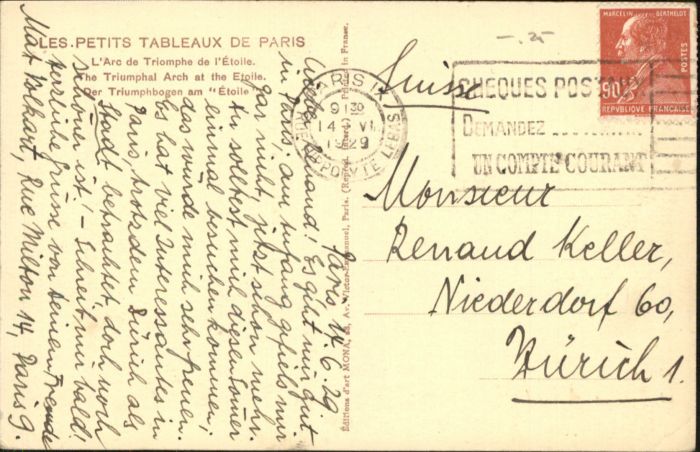 LES PETITS TABLEAUX DE PARIS
L'Arc de Triomphe de l'Étoile.
The Triumphal Arch at the Etoile.
Der Triumphbogen am "Étoile
Paris 14.6.29
Lieber Renand! Es geht mir gut
in Paris, am Anfang gefiels mir
gar nicht, jetzt schon mehr.
Du solltest mich diesen Somer
einmal besuchen kommen,
das würde mich sehr freuen.
Es hat viel Interessantes in
Paris, trotzdem Zürich als
Stadt betrachtet doch noch
schöner ist! - Schreib mir bald!
Herzliche Grüsse von Deinem Freunde
Max Volkart, Rue Milton 14, Paris 9.
Éditions d'art MONA, Av. Victor-Emmanuel, Paris. (Reprod. interd.) Printed in France.
PARIS IX
9 30
14 VI
1929
R. HIPPOLYTE LEBAS
CHEQUES POSTAUX
DEMANDEZ
UN COMPTE COURANT
MARCELIN BERTHELOT
POSTES
90c
REPUBLIQUE FRANÇAISE
-.25
Suisse
Monsieur
Renaud Keller,
Niederdorf 60,
Zürich 1.